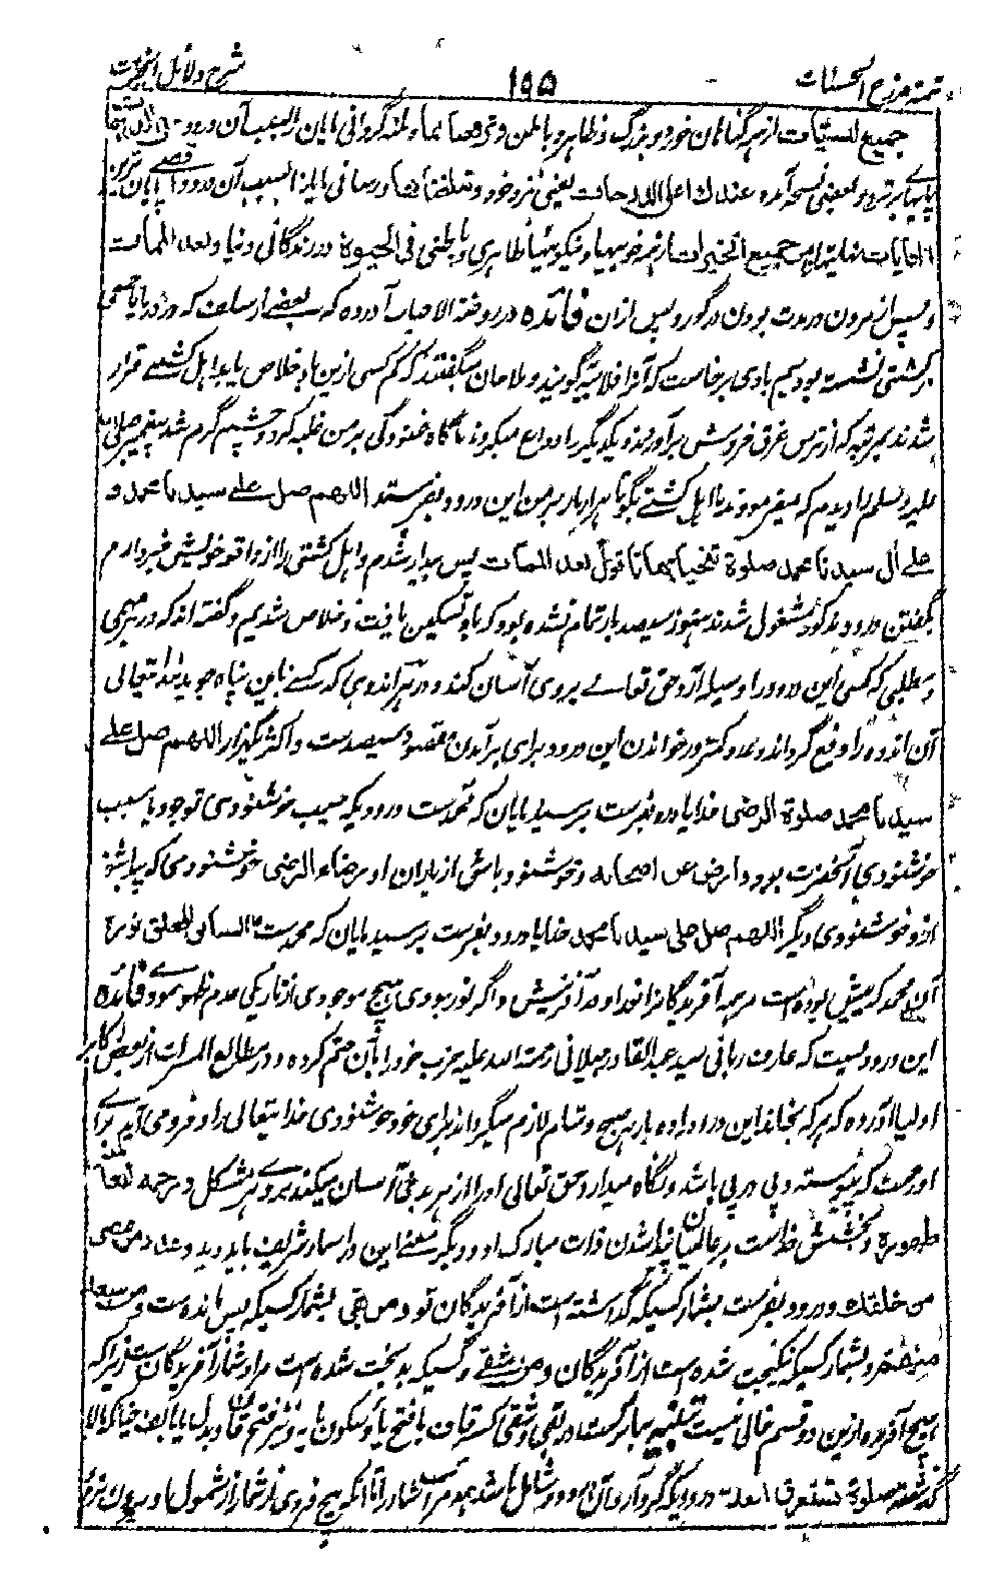 تتمه مزرع الحسنات ۱۹۵ شرح دلائل الخیرات
جمیع السیّات از همه گناهان خورد و بزرگ و ظاهر و باطن و ترفعنا بها و بلند گردانی مایان را بسبب آن درود
پایها برتر و بعضی نسخ آمده عندك اعلی الدرجات یعنی نزد خود و تبلغنا بها و رسانی مایان را بسبب آن درود اقصی
الغایات نهایتها من جمیع الخیرات از همه خوبیها و نیکوئیها ظاهری و باطنی فی الحیوة در زندگانی دنیا و بعد الممات
و پس از مردن در مدت بودن در گور و پس ازان فائده در روضة الاحباب آورده که بعضی از سلف که در دریا
بر کشتی نشسته بودیم بادی برخاست که آنرا اقلابیه گویند و ملاحان میگفتند که کم کسی ازین باد خلاص یابد اهل کشتی
شدند بمرتبه که از ترس غرق خروش برآوردند و یکدیگر را وداع میکردند ناگاه غنودگی بر من غلبه کرد و چشم گرم شد پیغمبر صلی الله
علیه و سلم را دیدم که میفرمودند با اهل کشتی بگو تا هزار بار بر من این درود بفرستند اللهم صل علی سیدنا محمد و
علی آل سیدنا محمد صلوة تنجینا بها تا قول بعد الممات پس بیدار شدم و اهل کشتی را از واقعه خویش خبر دادم
بگفتن درود مذکور مشغول شدند هنوز سیصد بار تمام نشده بود که باد تسکین یافت و خلاص شدیم و گفته اند که در هر مهمی
و مطلبی که کسی این درود را وسیله آرد حق تعالی بروی آسان کند و در هر اندوهی که کسی باین پناه جوید خدا یتعالی
آن اندوه را دفع گرداند و عدد کمتر در خواندن این درود برای برآمدن مقصود سیصدست و اکثر هزار اللهم صل علی
سیدنا محمد صلوة الرضی خدایا درود بفرست بر سید مایان که محمدست درودیکه سبب خوشنودی تو بود یا سبب
خوشنودی آنحضرت بود و ارض عن اصحابه و خوشنود باش از یاران او رضاء الرضی خوشنودی که پیدا شود
ازو خوشنودی دیگر اللهم صل علی سیدنا محمد خدایا درود بفرست بر سید مایان که محمدست السابق للخلق نوره
آن محمد که پیش بوده است مر همه آفریدگانرا نور او در آفرینش و اگر نور نبودی هیچ موجودی از تاریکی عدم ظهور ننمودی فائده
این درودیست که عارف ربانی سید عبدالقادر جیلانی رحمة الله علیه حزب خود را بآن ختم کرده و در مطالع المسرات از بعض اکابر
اولیا آورده که هر که بخواند این درود را ده بار هر صبح و شام لازم میگرداند برای خود خوشنودی خدا یتعالی را و فرو می آید برای
او رحمت که پیوسته و پی در پی باشد و نگاه میدارد حق تعالی او را از هر بدی و آسان میکند بروی هر مشکل و رحمة للعالمین
ظهوره و بخشش خداست بر عالمیان پیدا شدن ذات مبارک او و دیگر معنی این در اسماء شریف باید دید و عدد من مضی
من خلقك و درود بفرست بشمار کسیکه گذشته است از آفریدگان تو و من بقی بشمار کسیکه پس مانده است و من سعد
منهم و بشمار کسیکه نیکبخت شده است از آفریدگان و من شقی و کسیکه بدبخت شده است مراد شمار آفریدگان ست زیرا که
هیچ آفریده ازین دو قسم خالی نیست
گذشته صلوة تستغرق العد درودیکه گرد آرد آن درود و شامل باشد همه مراتب شمار را تا آنکه هیچ فردی از شمار از شمول او بیرون نرود